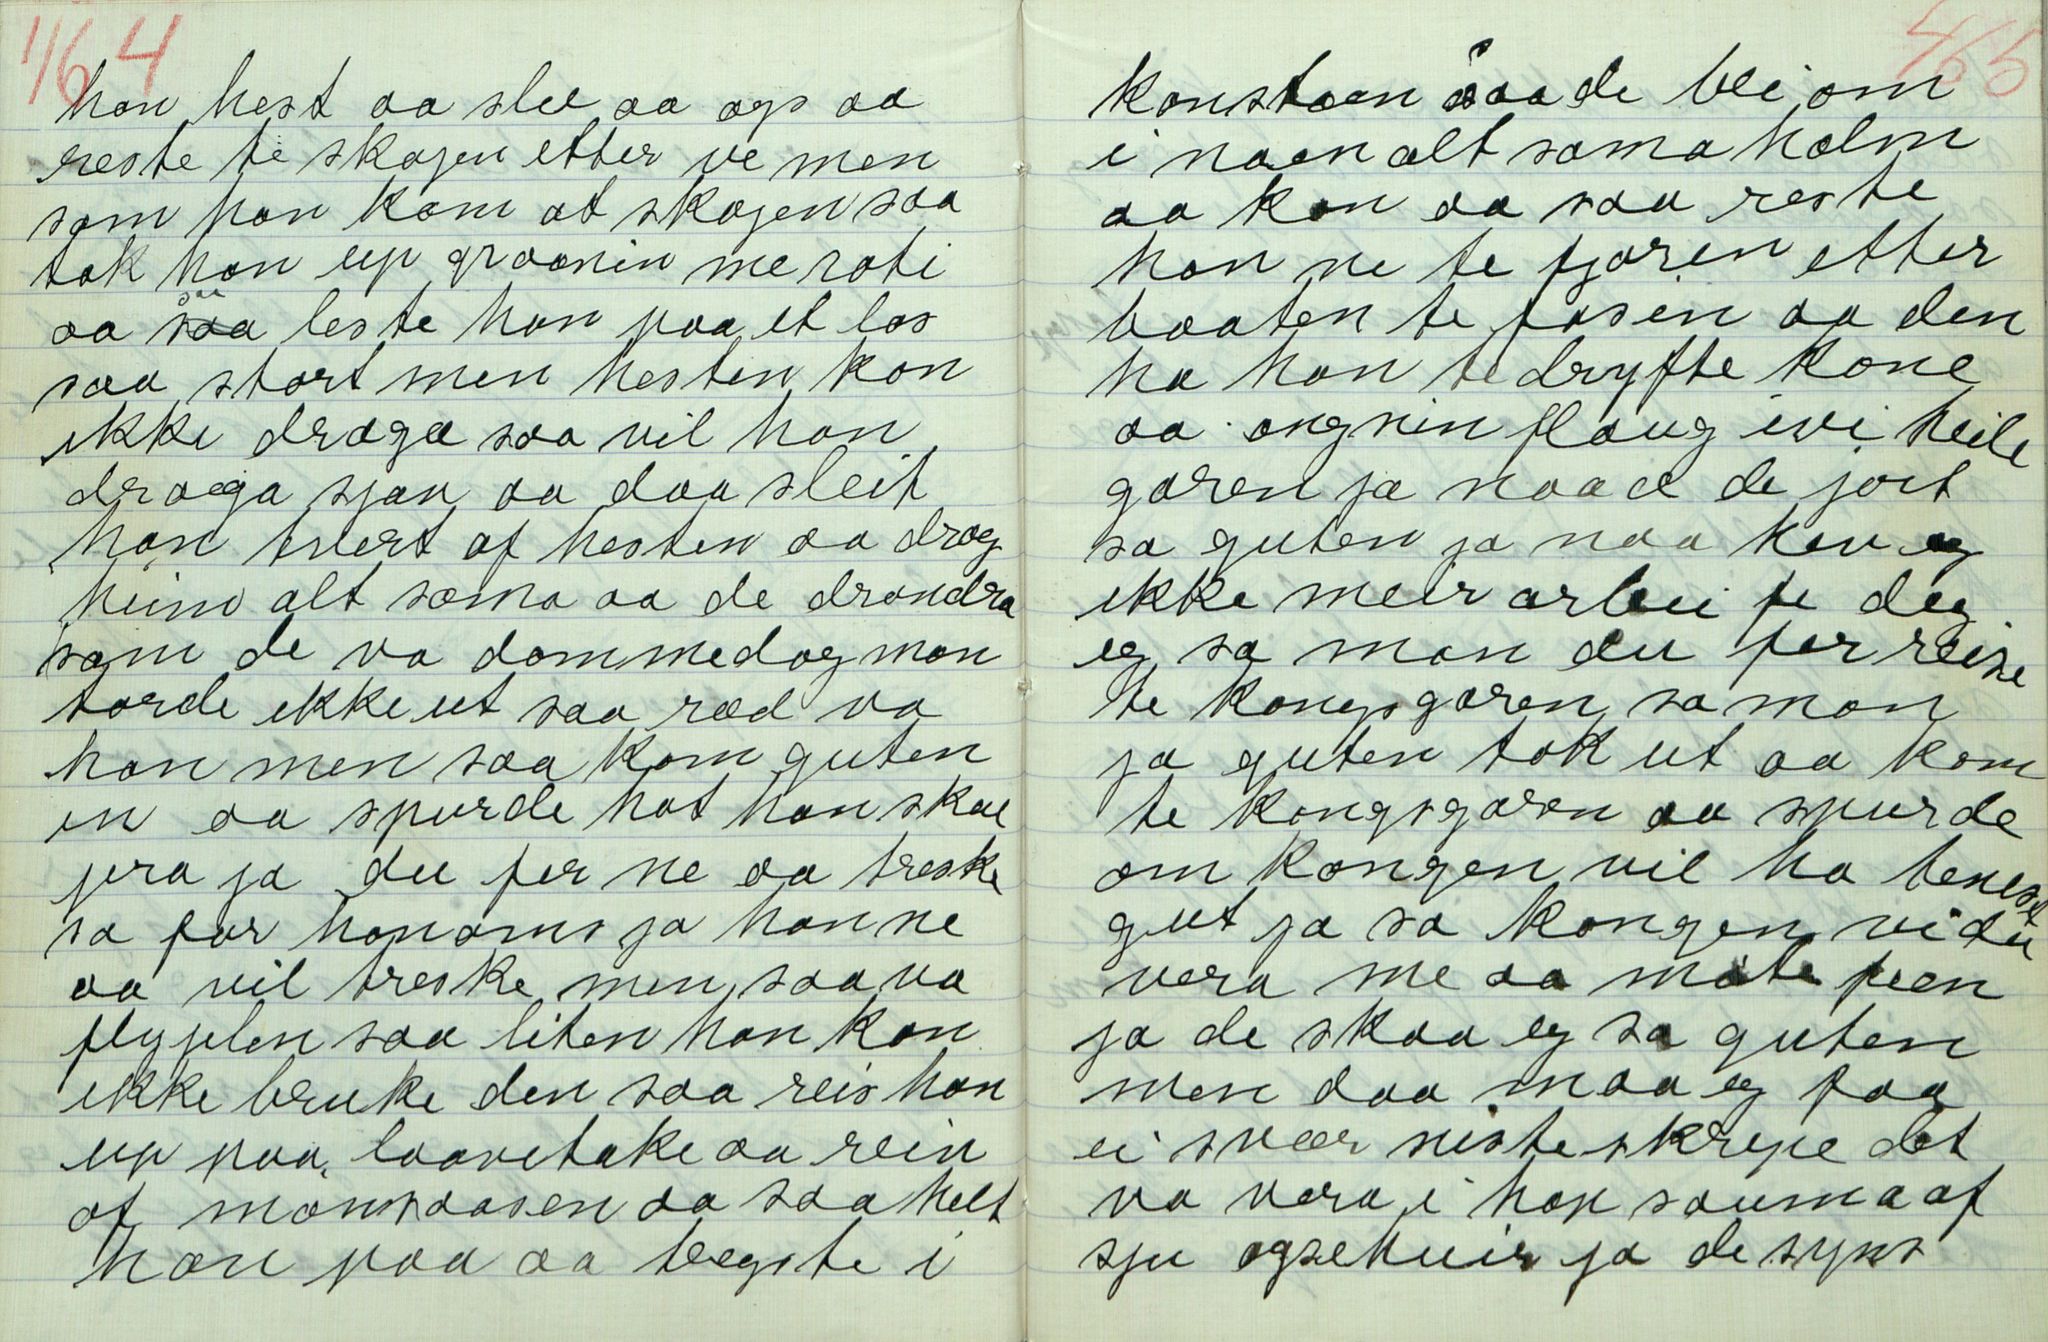 164
han hest aa slee aa øgs aa
reste te skogen etter ve men
som han kom at skogen saa
tok han up graanin me roti
aa saa leste han paa et las
saa stort men hesten kan
ikke drage saa vil han
drœga sjøn aa daa sleit
han tvert af hesten aa drog
heim alt sama aa de drondra
som de va dommedag man
torde ikke ut saa ræd va
han men saa kom guten
in aa spurde hot han skul
jera ja du fer ne aa treske
sa far honoms ja han ne
aa vil treske men saa va
flyjelen saa liten han kan
ikke bruke den saa reis han
up paa laavetake aa rein
af mønsaasen aa saa helt
han paa aa bøgste i
165
konstaen saa de blei om
i naaen alt sama halm
aa kon aa saa reste
han ne te fjøren etter
baaten te fosin aa den
ha han te dryfte kone
aa ongnin flaug ivi heile
garen ja naa æ de jort
sa guten ja naa ken eg
ikke meir arbei fe deg
eg sa man du fer reise
te kongsgaren sa man
ja guten tok ut aa kom
te kongsgaren aa spurde
om kongen vil ha tenest
gut ja sa kongen vi du
vera me aa møte feen
ja de skaa eg sa guten
men daa maa eg faa
ei svær nisteskrepe det
va vera i hop sauma af
sju øgsehuir ja de syns